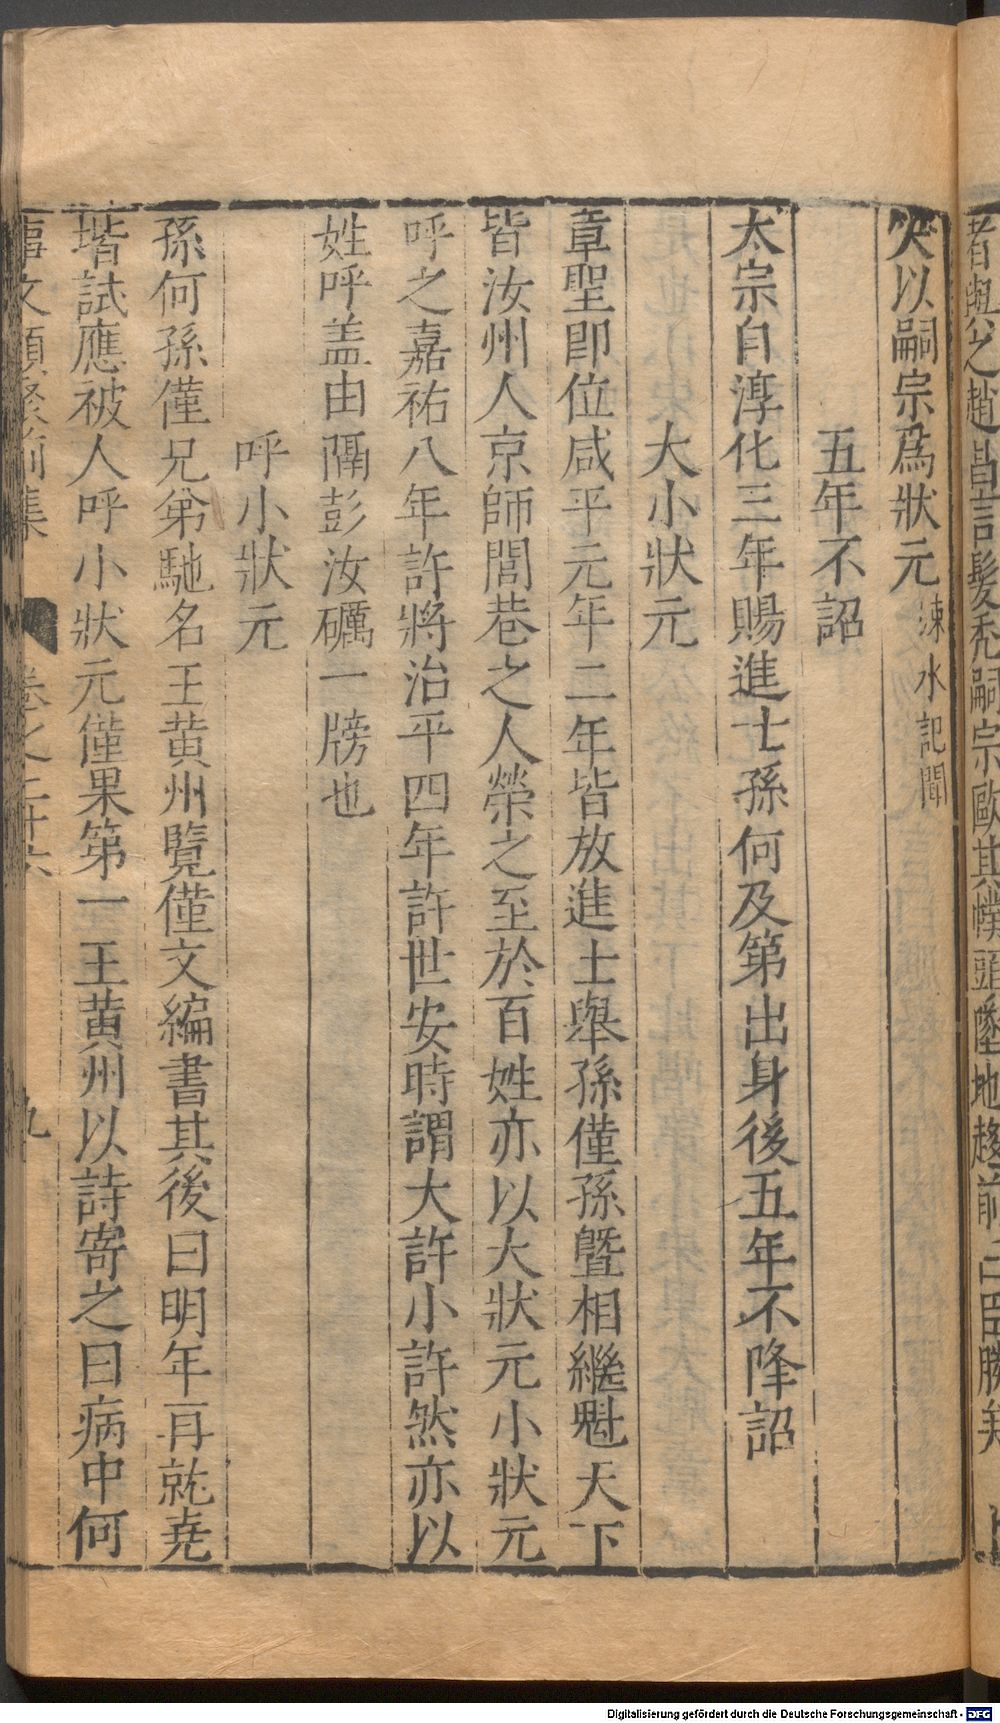 者與之趙昌言髮秃嗣宗歐其幞頭墜地趨前
臣勝矣
大以嗣宗爲狀元涑水記聞
五年不詔
太宗自淳化三年賜進士孫何及第出身後五年不降詔
大小狀元
章聖即位咸平元年二年皆放進士舉孫僅孫暨相繼魁天下
皆汝州人京師閭巷之人榮之至於百姓亦以大狀元小狀元
呼之嘉祐八年許將治平四年許世安時謂大許小許然亦以
姓呼盖由隔彭汝礪一牓也
呼小狀元
孫何孫僅兄弟馳名王黄州覽僅文編書其後曰明年再就堯
堦試應被人呼小狀元僅果第一王黄州以詩寄之曰病中何
事文類聚前集 卷之二十六 九
Digitalisierung gefördert durch die Deutsche Forschungsgemeinschaft - DFG